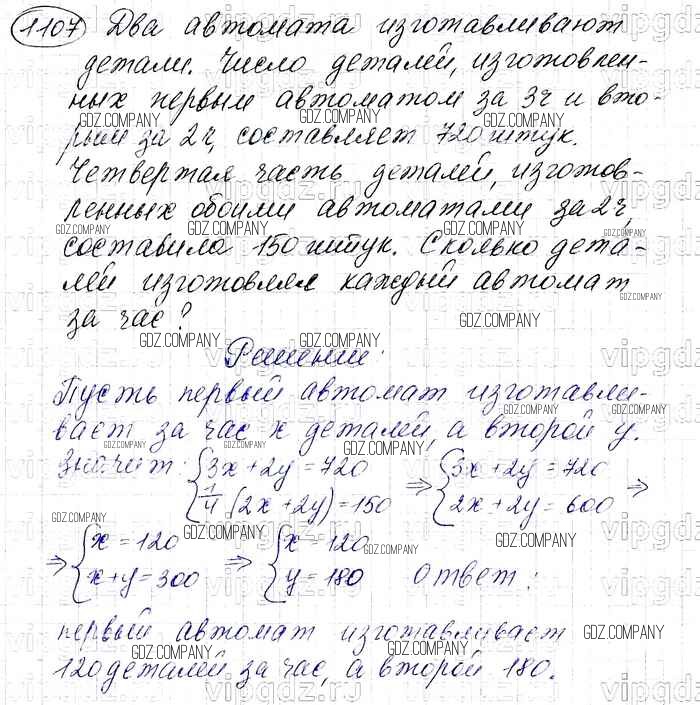 1107 Два автомата изготавливают
детали. Число деталей, изготовлен-
ных первым автоматом за 3ч и вто-
рым за 2ч, составляет 720 штук.
Четвертая часть деталей, изготов-
ленных обоими автоматами за 2ч,
составила 150 штук. Сколько дета-
лей изготовлял каждый автомат
за час?
Решение:
Пусть первый автомат изготавли-
вает за час x деталей, а второй y.
Значит: {3x+2y=720 {1/4(2x+2y)=150 => {3x+2y=720 {2x+2y=600 =>
=> {x=120 {x+y=300 => {x=120 {y=180 Ответ:
первый автомат изготавливает
120 деталей за час, а второй 180.
GDZ.COMPANY
vipgdz.ru